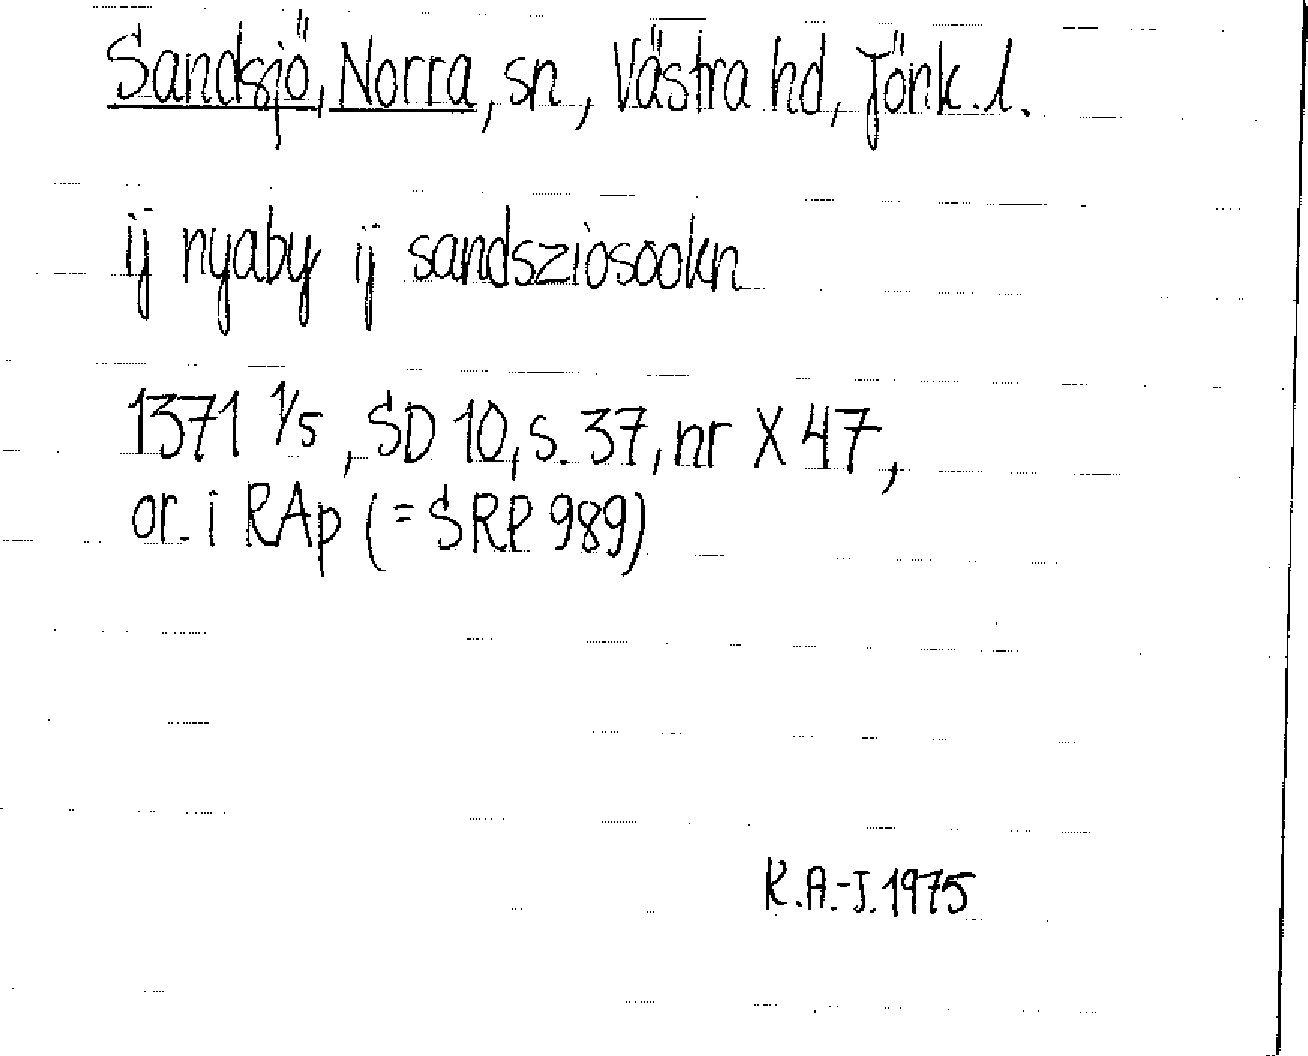 Sandsjö, Norra, sn, Västra hd, Jönk. l.
ij nyaby ij sandsziosookn
1371 1/5, SD 10, s. 37, nr X 47,
or. i RAp (= SRP 989)
K.A.-J. 1975